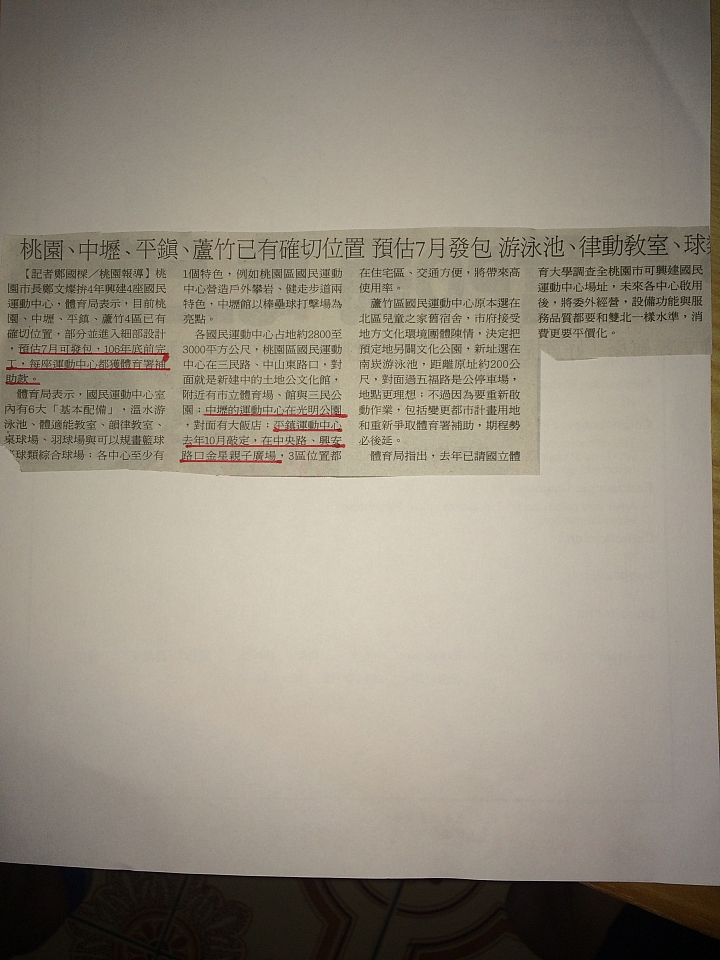 桃園、中壢、平鎮、蘆竹已有確切位置 預估7月發包 游泳池、律動教室、球
【記者鄭國樑／桃園報導】桃
園市長鄭文燦拚4年興建4座國民
運動中心，體育局表示，目前桃
園、中壢、平鎮、蘆竹4區已有
確切位置，部分並進入細部設計
，預估7月可發包，106年底前完
工，每座運動中心都獲體育署補
助款。
體育局表示，國民運動中心室
內有6大「基本配備」，溫水游
泳池、體適能教室、韻律教室、
桌球場、羽球場與可以規畫籃球
等球類綜合球場；各中心至少有
1個特色，例如桃園區國民運動
中心營造戶外攀岩、健走步道兩
特色，中壢館以棒壘球打擊場為
亮點。
各國民運動中心占地約2800至
3000平方公尺，桃園區國民運動
中心在三民路、中山東路口，對
面就是新建中的土地公文化館，
附近有市立體育場、館與三民公
園；中壢的運動中心在光明公園
，對面有大飯店；平鎮運動中心
去年10月敲定，在中央路、興安
路口金星親子廣場，3區位置都
在住宅區、交通方便，將帶來高
使用率。
蘆竹區國民運動中心原本選在
北區兒童之家舊宿舍，市府接受
地方文化環境團體陳情，決定把
預定地另闢文化公園，新址選在
南崁游泳池，距離原址約200公
尺，對面過五福路是公停車場，
地點更理想；不過因為要重新啟
動作業，包括變更都市計畫用地
和重新爭取體育署補助，期程勢
必後延。
體育局指出，去年已請國立體
育大學調查全桃園市可興建國民
運動中心場址，未來各中心啟用
後，將委外經營，設備功能與服
務品質都要和雙北一樣水準，消
費更要平價化。